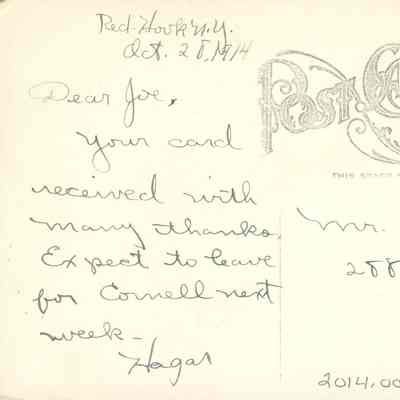 Red Hook N.Y.
Oct. 28, 1914
Dear Joe,
Your card
received with
many thanks.
Expect to leave
for Cornell next
week-
Hagar
POST CA
THIS SPACE
Mr.
288
2014.00